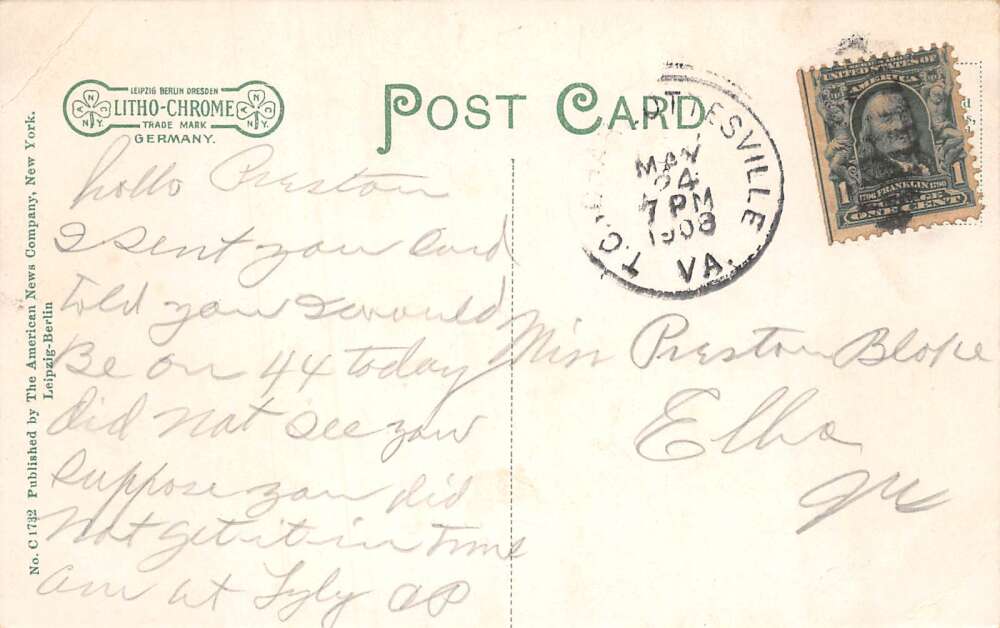 LEIPZIG BERLIN DRESDEN
LITHO-CHROME
TRADE MARK
GERMANY.
ANCNY
ANCNY
POST CARD
CHARLOTTESVILLE
MAY
24
7 PM
1908
VA.
UNITED STATES OF
AMERICA
1706 FRANKLIN 1790
1 1
ONE CENT
No. C 1732 Published by The American News Company, New York.
Leipzig-Berlin
hello Preston
I sent you Card
told you I would
Be on 44 today
did not see you
suppose you did
Not get it in Time
am at
Miss Preston Blake
Elba